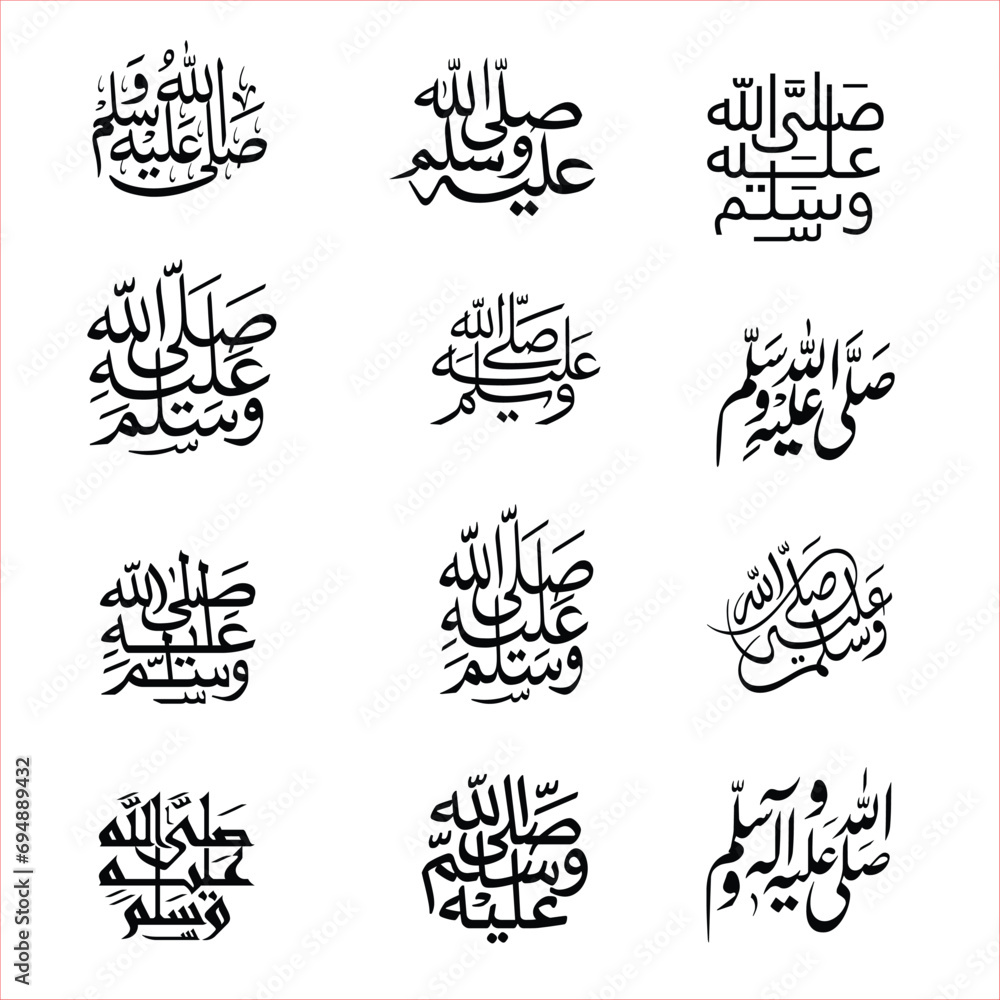 صلى الله عليه وسلم
صلى الله عليه وسلم
صلى الله عليه وسلم
صلى الله عليه وسلم
صلى الله عليه وسلم
صلى الله عليه وسلم
صلى الله عليه وسلم
صلى الله عليه وسلم
صلى الله عليه وسلم
صلى الله عليه وسلم
صلى الله عليه وسلم
صلى الله عليه وآله وسلم
Adobe Stock | #694889432